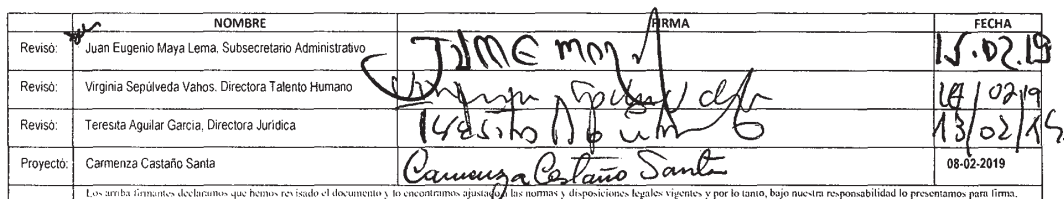 NOMBRE FIRMA FECHA
Revisó: Juan Eugenio Maya Lema. Subsecretario Administrativo 15.02.19
Revisó: Virginia Sepúlveda Vahos. Directora Talento Humano 14/02/19
Revisó: Teresita Aguilar Garcia, Directora Jurídica 13/02/19
Proyectó: Carmenza Castaño Santa Carmenza Castaño Santa 08-02-2019
Los arriba firmantes declaramos que hemos revisado el documento y lo encontramos ajustado a las normas y disposiciones legales vigentes y por lo tanto, bajo nuestra responsabilidad lo presentamos para firma.